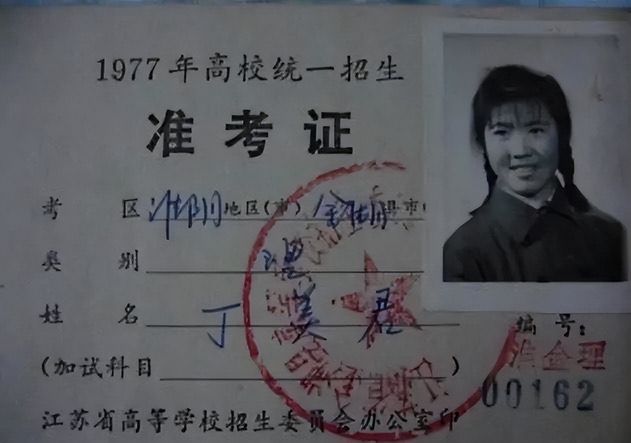 1977年高校统一招生
准考证
考 区 淮阴地区(市) 金湖县市
类 别 理
姓 名 丁 美 君
编号:
(加试科目 )
淮金理
00162
江苏省高等学校招生委员会办公室印